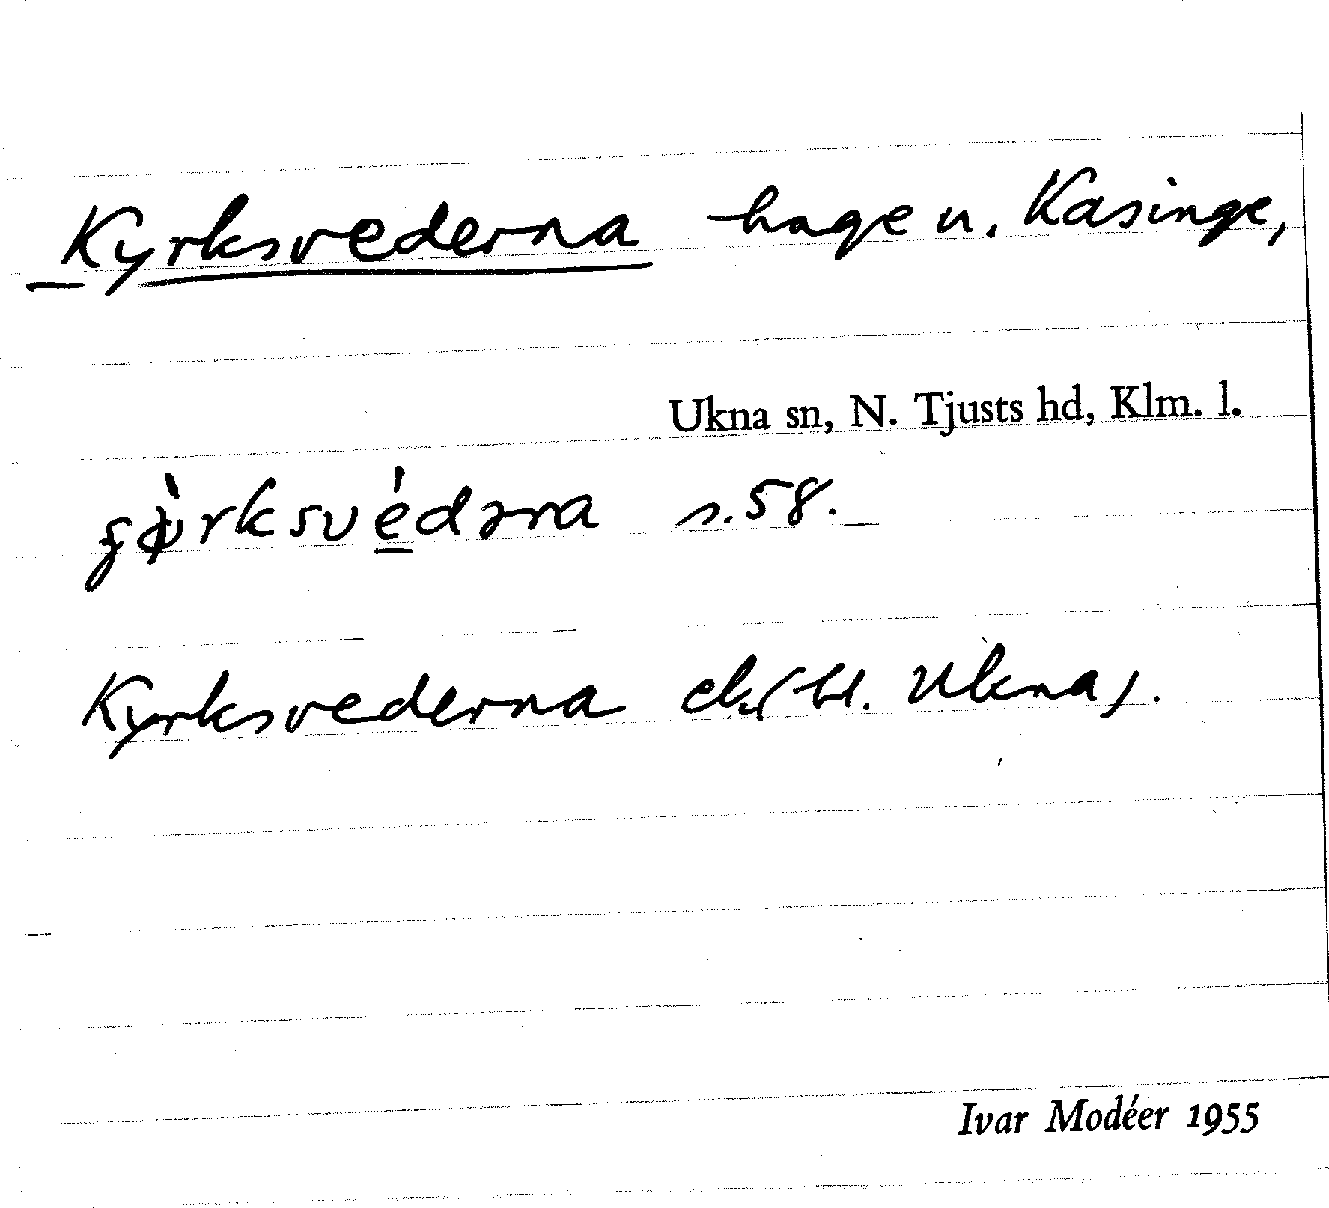 Kyrksvederna hage u. Kasinge,
Ukna sn, N. Tjusts hd, Klm. l.
s. 58.
Kyrksvederna ek. (bl. Ukna).
Ivar Modéer 1955